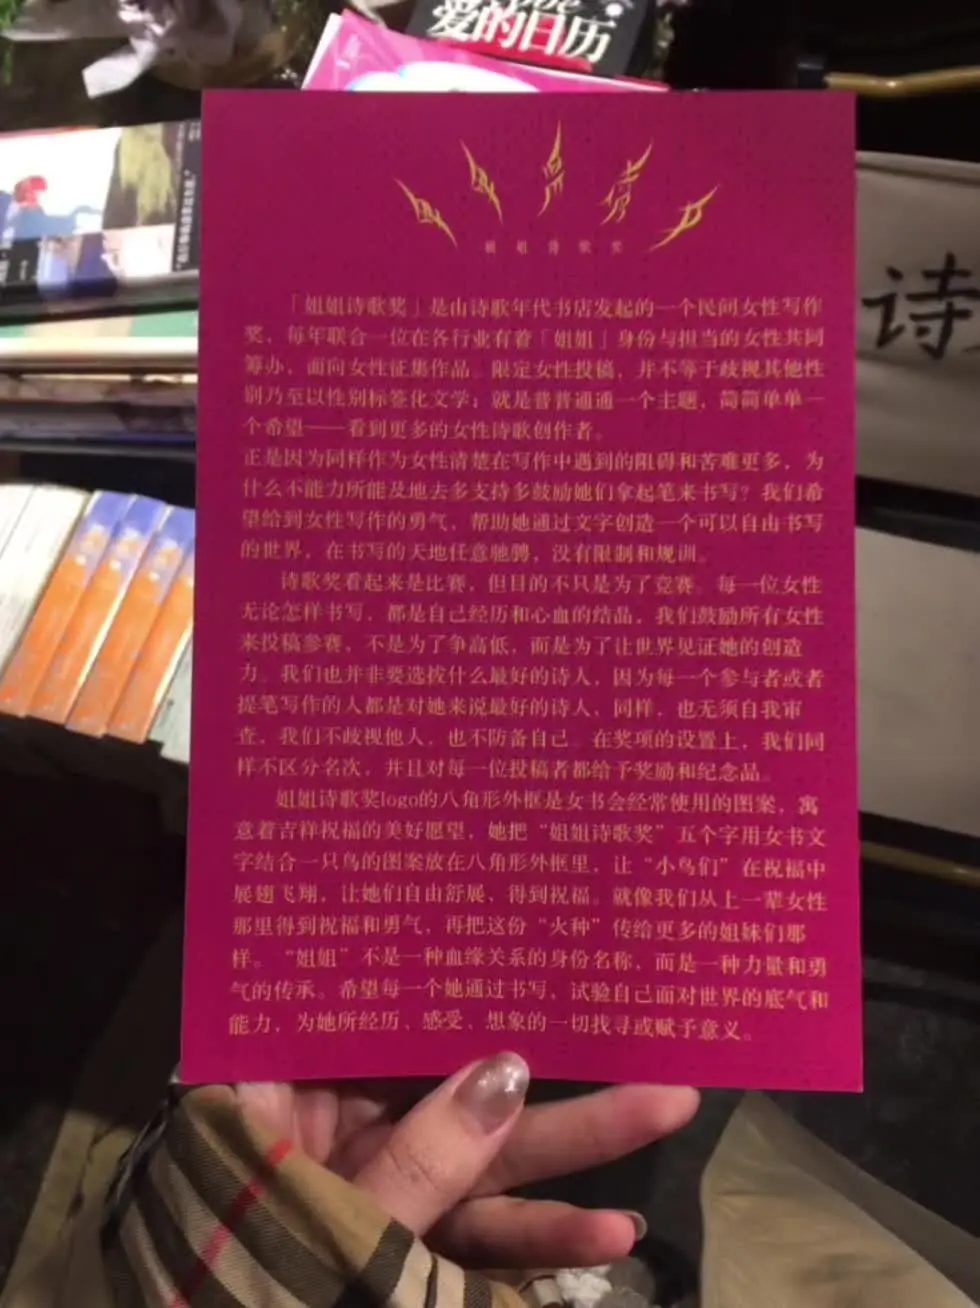 爱的日历
姐姐诗歌奖
「姐姐诗歌奖」是由诗歌年代书店发起的一个民间女性写作
奖，每年联合一位在各行业有着「姐姐」身份与担当的女性共同
筹办，面向女性征集作品。限定女性投稿，并不等于歧视其他性
别乃至以性别标签化文学；就是普普通通一个主题，简简单单一
个希望——看到更多的女性诗歌创作者。
正是因为同样作为女性清楚在写作中遇到的阻碍和苦难更多，为
什么不能力所能及地去多支持多鼓励她们拿起笔来书写？我们希
望给到女性写作的勇气，帮助她通过文字创造一个可以自由书写
的世界，在书写的天地任意驰骋，没有限制和规训。
诗歌奖看起来是比赛，但目的不只是为了竞赛。每一位女性
无论怎样书写，都是自己经历和心血的结晶，我们鼓励所有女性
来投稿参赛，不是为了争高低，而是为了让世界见证她的创造
力。我们也并非要选拔什么最好的诗人，因为每一个参与者或者
提笔写作的人都是对她来说最好的诗人，同样，也无须自我审
查，我们不歧视他人，也不防备自己。在奖项的设置上，我们同
样不区分名次，并且对每一位投稿者都给予奖励和纪念品。
姐姐诗歌奖logo的八角形外框是女书会经常使用的图案，寓
意着吉祥祝福的美好愿望，她把“姐姐诗歌奖”五个字用女书文
字结合一只鸟的图案放在八角形外框里，让“小鸟们”在祝福中
展翅飞翔，让她们自由舒展、得到祝福。就像我们从上一辈女性
那里得到祝福和勇气，再把这份“火种”传给更多的姐妹们那
样。“姐姐”不是一种血缘关系的身份名称，而是一种力量和勇
气的传承。希望每一个她通过书写，试验自己面对世界的底气和
能力，为她所经历、感受、想象的一切找寻或赋予意义。
诗